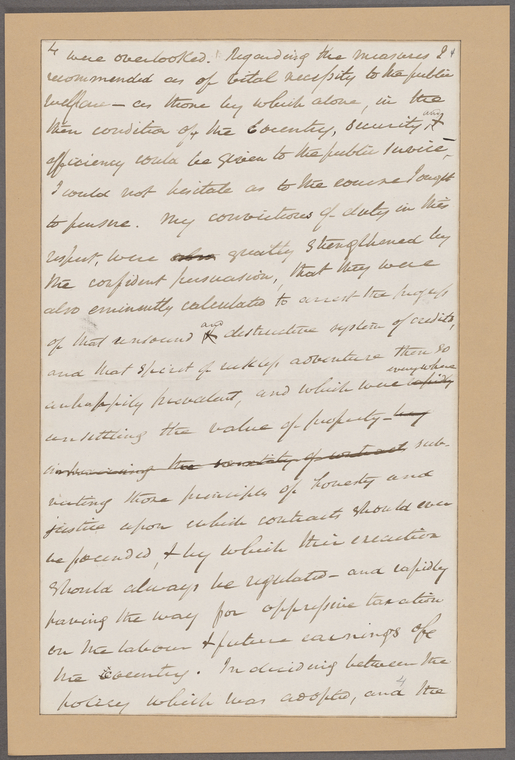 4 were overlooked. Regarding the measures I
recommended as of vital necessity to the public
welfare – as those by which alone, in the
then condition of the Country, security and &
efficiency could be given to the public service,
I could not hesitate as to the course I ought
to pursue. My convictions of duty in this
respect, were also greatly strengthened by
the confident persuasion, that they were
also eminently calculated to arrest the progress
of that unsound and & destructive system of credits,
and that spirit of reckless adventure then so
unhappily prevalent, and which were everywhere rapidly
unsettling the value of property – by
the sanctity of contract, sub-
verting those principles of honesty and
justice upon which contracts should ever
be founded, & by which their execution
should always be regulated – and rapidly
paving the way for oppressive taxation
on the labour & future earnings of
the country. In deciding between the
policy which was adopted, and 4 the